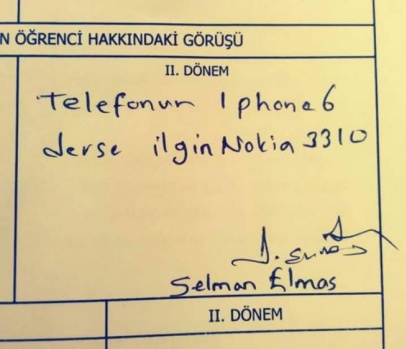 N ÖĞRENCİ HAKKINDAKİ GÖRÜŞÜ
II. DÖNEM
Telefonun Iphone6
derse ilgin Nokia 3310
Selman Elmas
II. DÖNEM